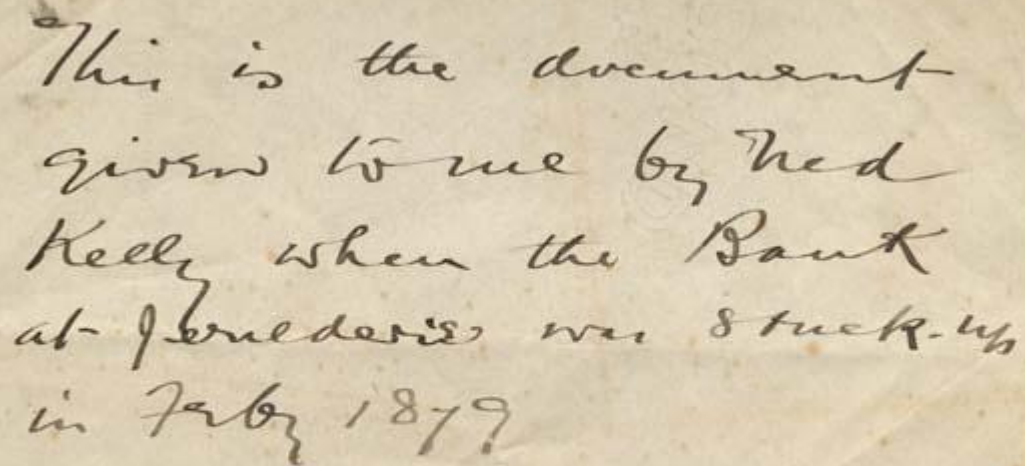 This is the document
given to me by Ned
Kelly when the Bank
at Jerulderie was stuck-up
in Feby 1879